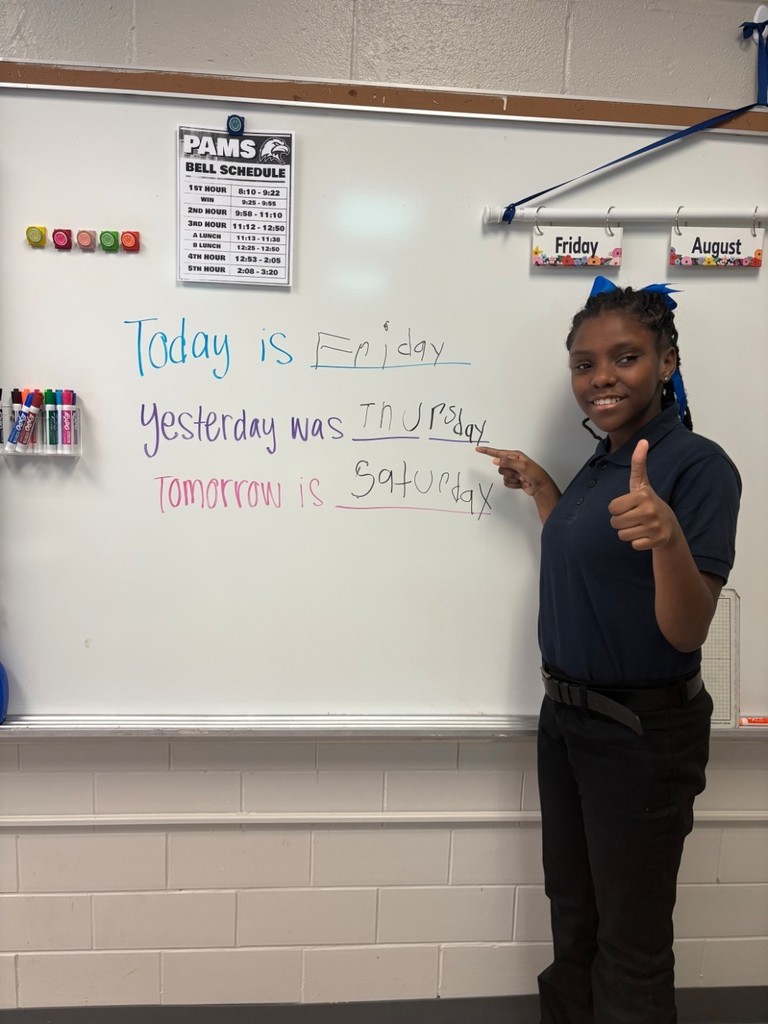 PAMS
BELL SCHEDULE
1ST HOUR 8:10 - 9:22
WIN 9:25 - 9:55
2ND HOUR 9:58 - 11:10
3RD HOUR 11:12 - 12:50
A LUNCH 11:13 - 11:38
B LUNCH 12:25 - 12:50
4TH HOUR 12:53 - 2:05
5TH HOUR 2:08 - 3:20
Friday August
Today is Friday
Yesterday was Thursday
Tomorrow is Saturday